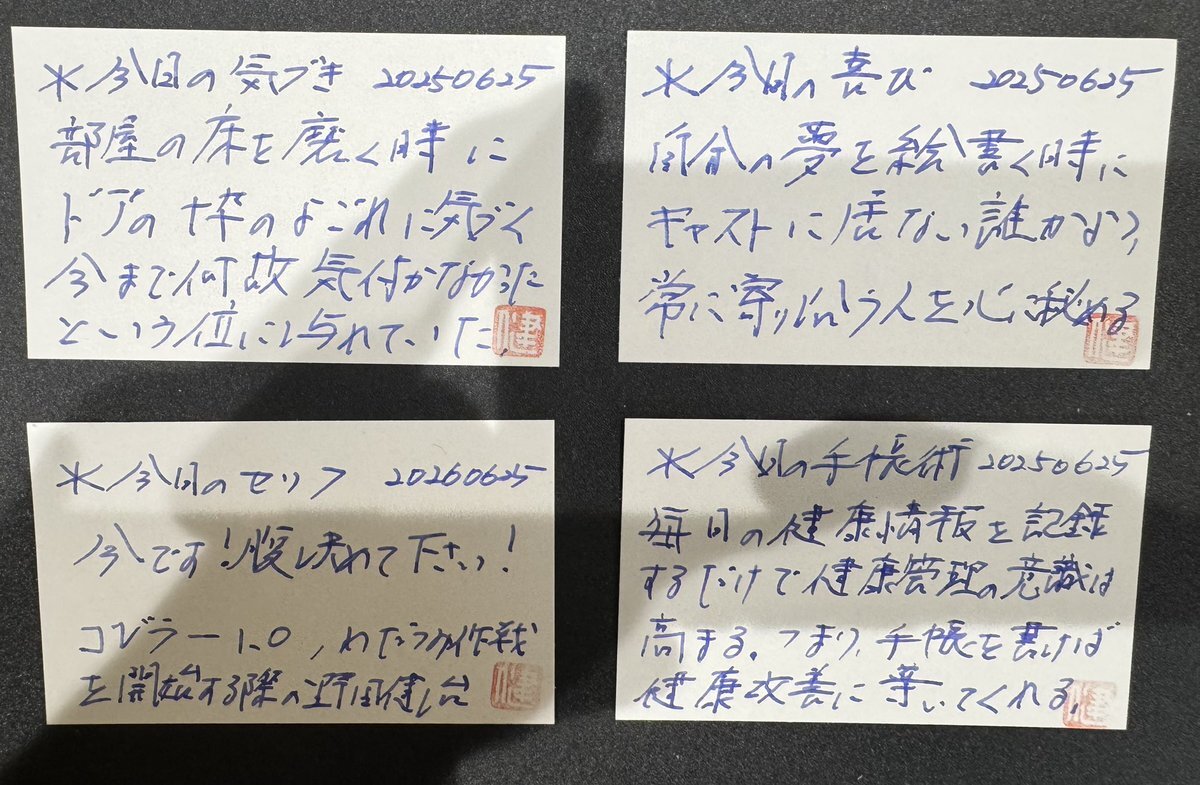 *今日の気づき 20250625
部屋の床を磨く時に
ドアの枠のよごれに気づく
今まで何故気付かなかった
という位に汚れていた。
*今日の喜び 20250625
自分の夢を絵書く時に
キャストに居ない誰かなら、
常に寄り添う人を心に秘める
*今日のセリフ 20260625
今です!腹決めて下さい!
コブラー1.0、わだつみ作戦
を開始する際の
*今日の手帳術 20250625
毎日の健康情報を記録
するだけで健康管理の意識は
高まる。つまり、手帳を書けば
健康改善に導いてくれる。